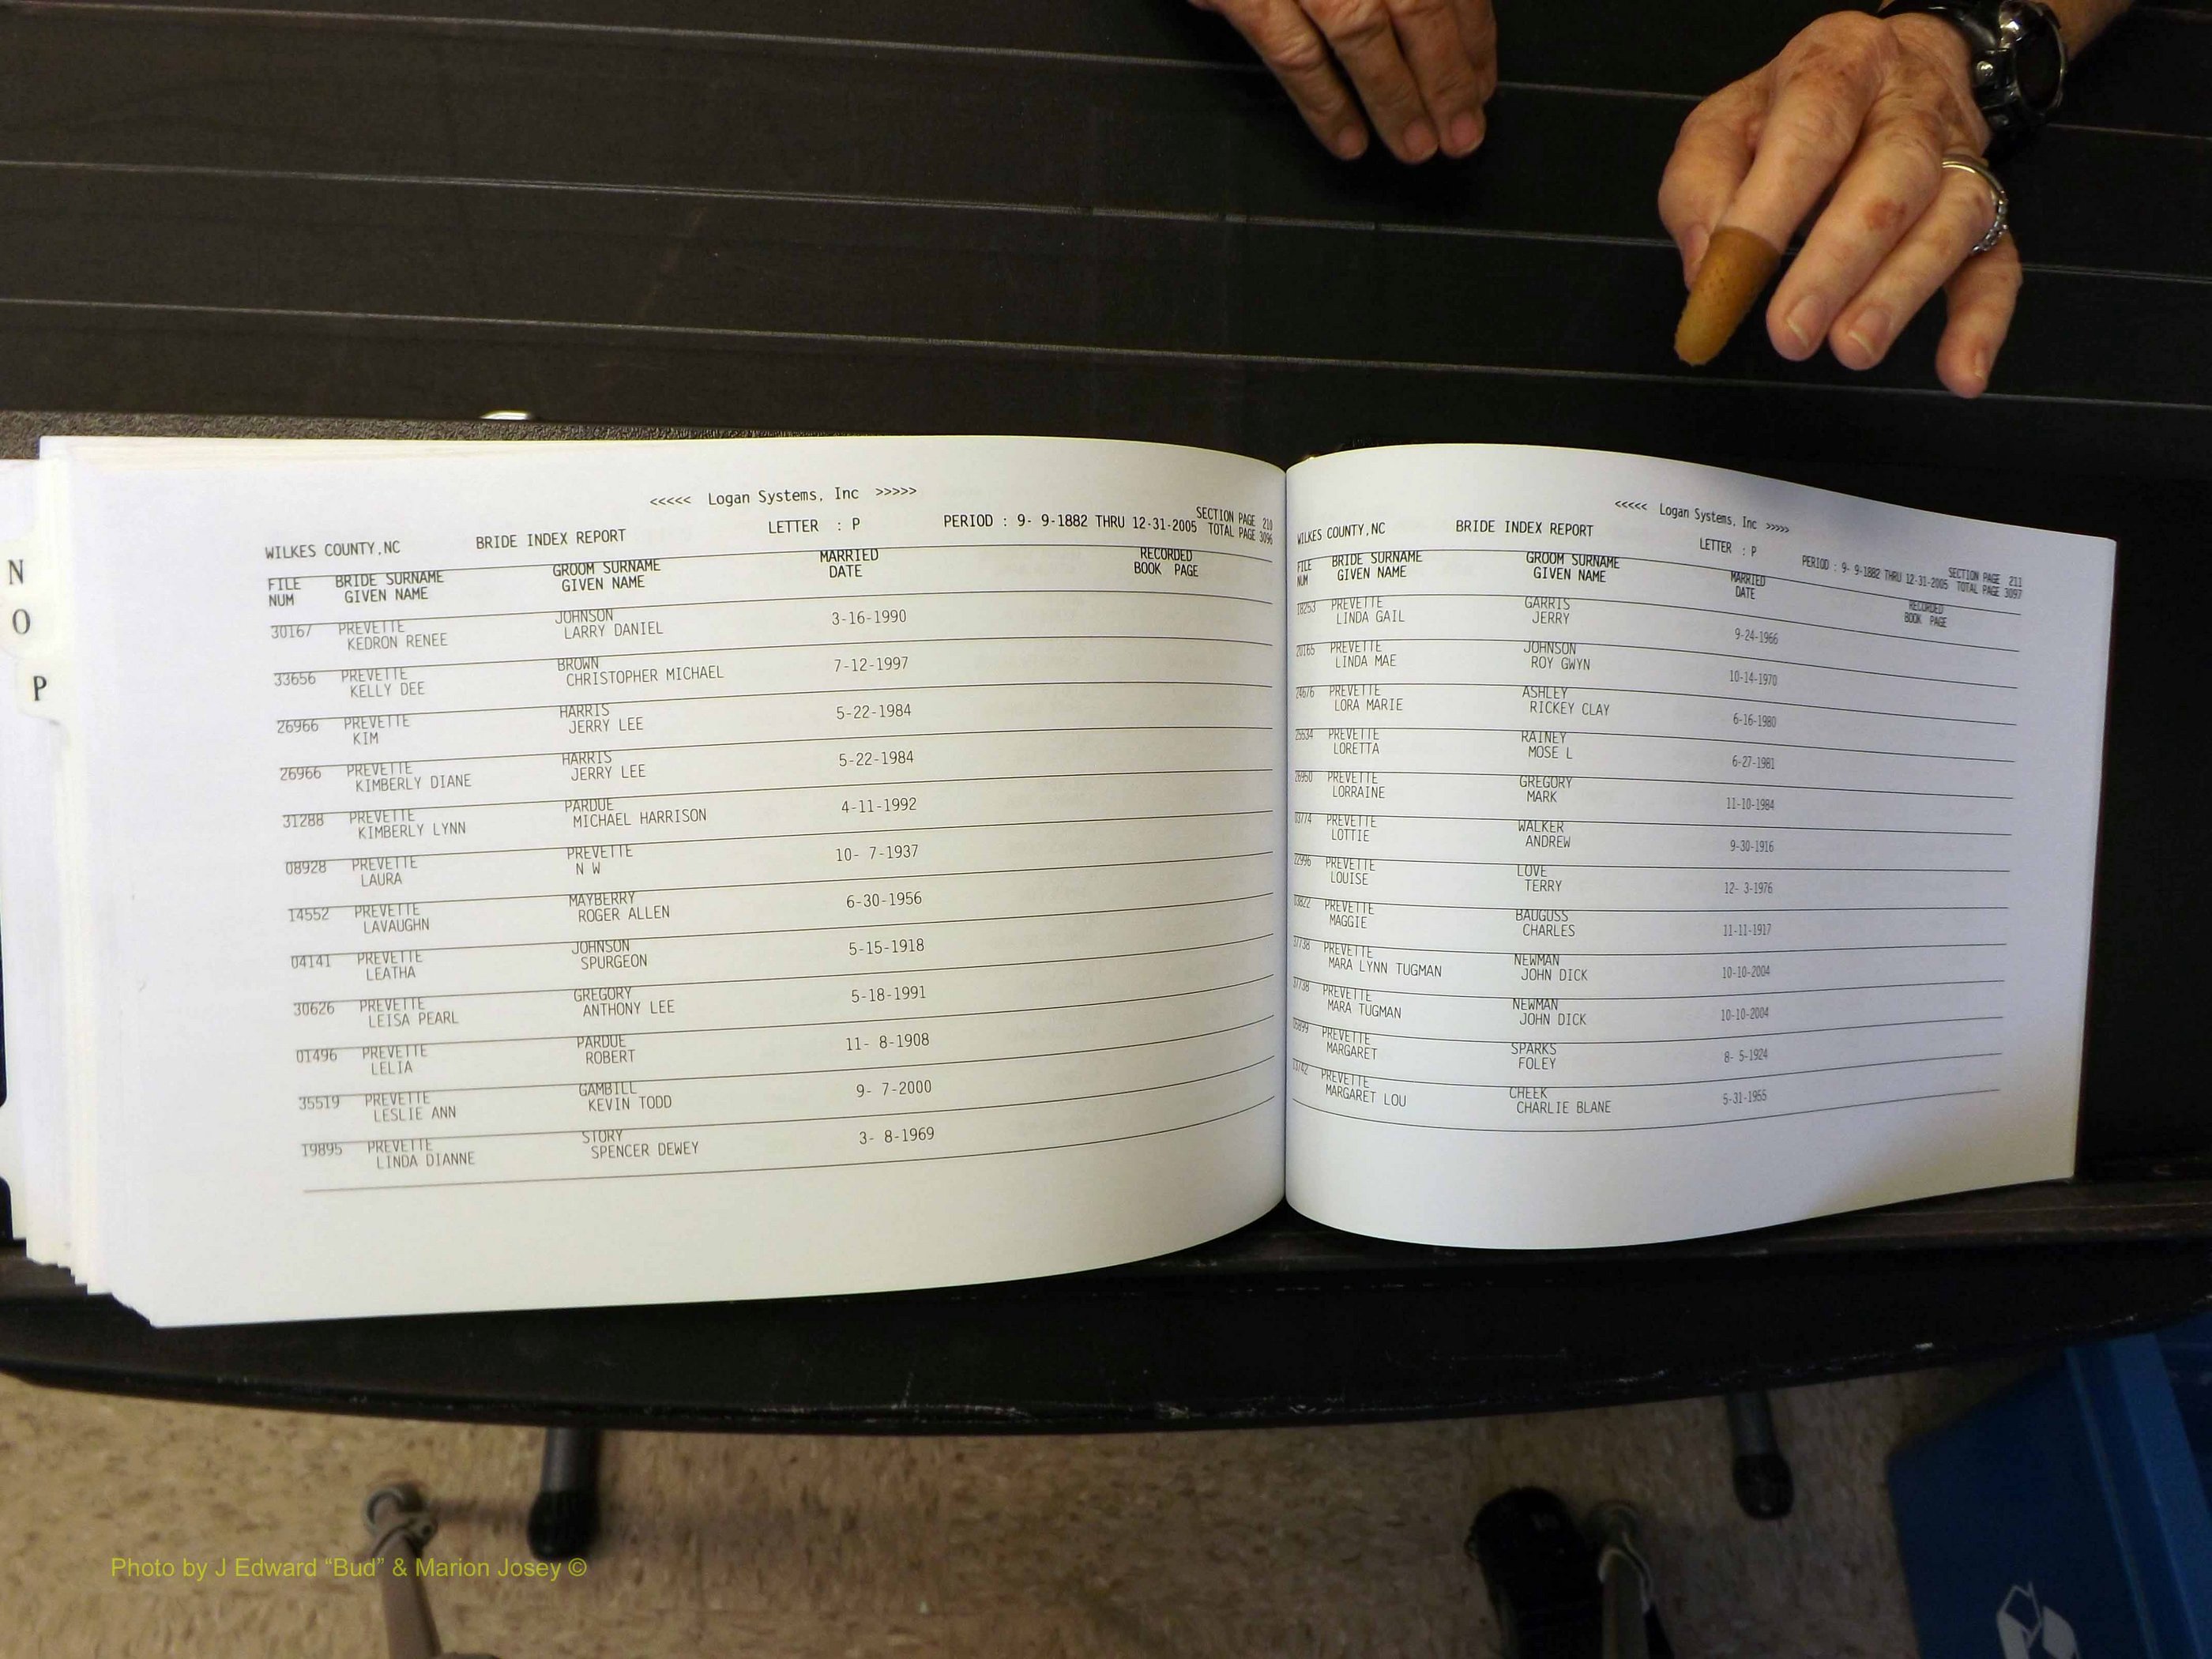 N
O
P
<<<<< Logan Systems, Inc >>>>>
WILKES COUNTY,NC BRIDE INDEX REPORT LETTER : P PERIOD : 9- 9-1882 THRU 12-31-2005 SECTION PAGE 210
TOTAL PAGE 3096
FILE BRIDE SURNAME GROOM SURNAME MARRIED RECORDED
NUM GIVEN NAME GIVEN NAME DATE BOOK PAGE
30167 PREVETTE JOHNSON 3-16-1990
KEDRON RENEE LARRY DANIEL
33656 PREVETTE BROWN 7-12-1997
KELLY DEE CHRISTOPHER MICHAEL
26966 PREVETTE HARRIS 5-22-1984
KIM JERRY LEE
26966 PREVETTE HARRIS 5-22-1984
KIMBERLY DIANE JERRY LEE
31288 PREVETTE PARDUE 4-11-1992
KIMBERLY LYNN MICHAEL HARRISON
08928 PREVETTE PREVETTE 10- 7-1937
LAURA N W
14552 PREVETTE MAYBERRY 6-30-1956
LAVAUGHN ROGER ALLEN
04141 PREVETTE JOHNSON 5-15-1918
LEATHA SPURGEON
30626 PREVETTE GREGORY 5-18-1991
LEISA PEARL ANTHONY LEE
01496 PREVETTE PARDUE 11- 8-1908
LELIA ROBERT
35519 PREVETTE GAMBILL 9- 7-2000
LESLIE ANN KEVIN TODD
19895 PREVETTE STORY 3- 8-1969
LINDA DIANNE SPENCER DEWEY
<<<<< Logan Systems, Inc >>>>>
WILKES COUNTY,NC BRIDE INDEX REPORT LETTER : P PERIOD : 9- 9-1882 THRU 12-31-2005 SECTION PAGE 211
TOTAL PAGE 3097
FILE BRIDE SURNAME GROOM SURNAME MARRIED RECORDED
NUM GIVEN NAME GIVEN NAME DATE BOOK PAGE
18253 PREVETTE GARRIS 9-24-1966
LINDA GAIL JERRY
20165 PREVETTE JOHNSON 10-14-1970
LINDA MAE ROY GWYN
24676 PREVETTE ASHLEY 6-16-1980
LORA MARIE RICKEY CLAY
25534 PREVETTE RAINEY 6-27-1981
LORETTA MOSE L
PREVETTE GREGORY 11-10-1984
LORRAINE MARK
03774 PREVETTE WALKER 9-30-1916
LOTTIE ANDREW
22996 PREVETTE LOVE 12- 3-1976
LOUISE TERRY
03822 PREVETTE BAUGUSS 11-11-1917
MAGGIE CHARLES
37738 PREVETTE NEWMAN 10-10-2004
MARA LYNN TUGMAN JOHN DICK
37738 PREVETTE NEWMAN 10-10-2004
MARA TUGMAN JOHN DICK
PREVETTE SPARKS 8- 5-1924
MARGARET FOLEY
PREVETTE CHEEK 5-31-1955
MARGARET LOU CHARLIE BLANE
Photo by J Edward “Bud” & Marion Josey ©